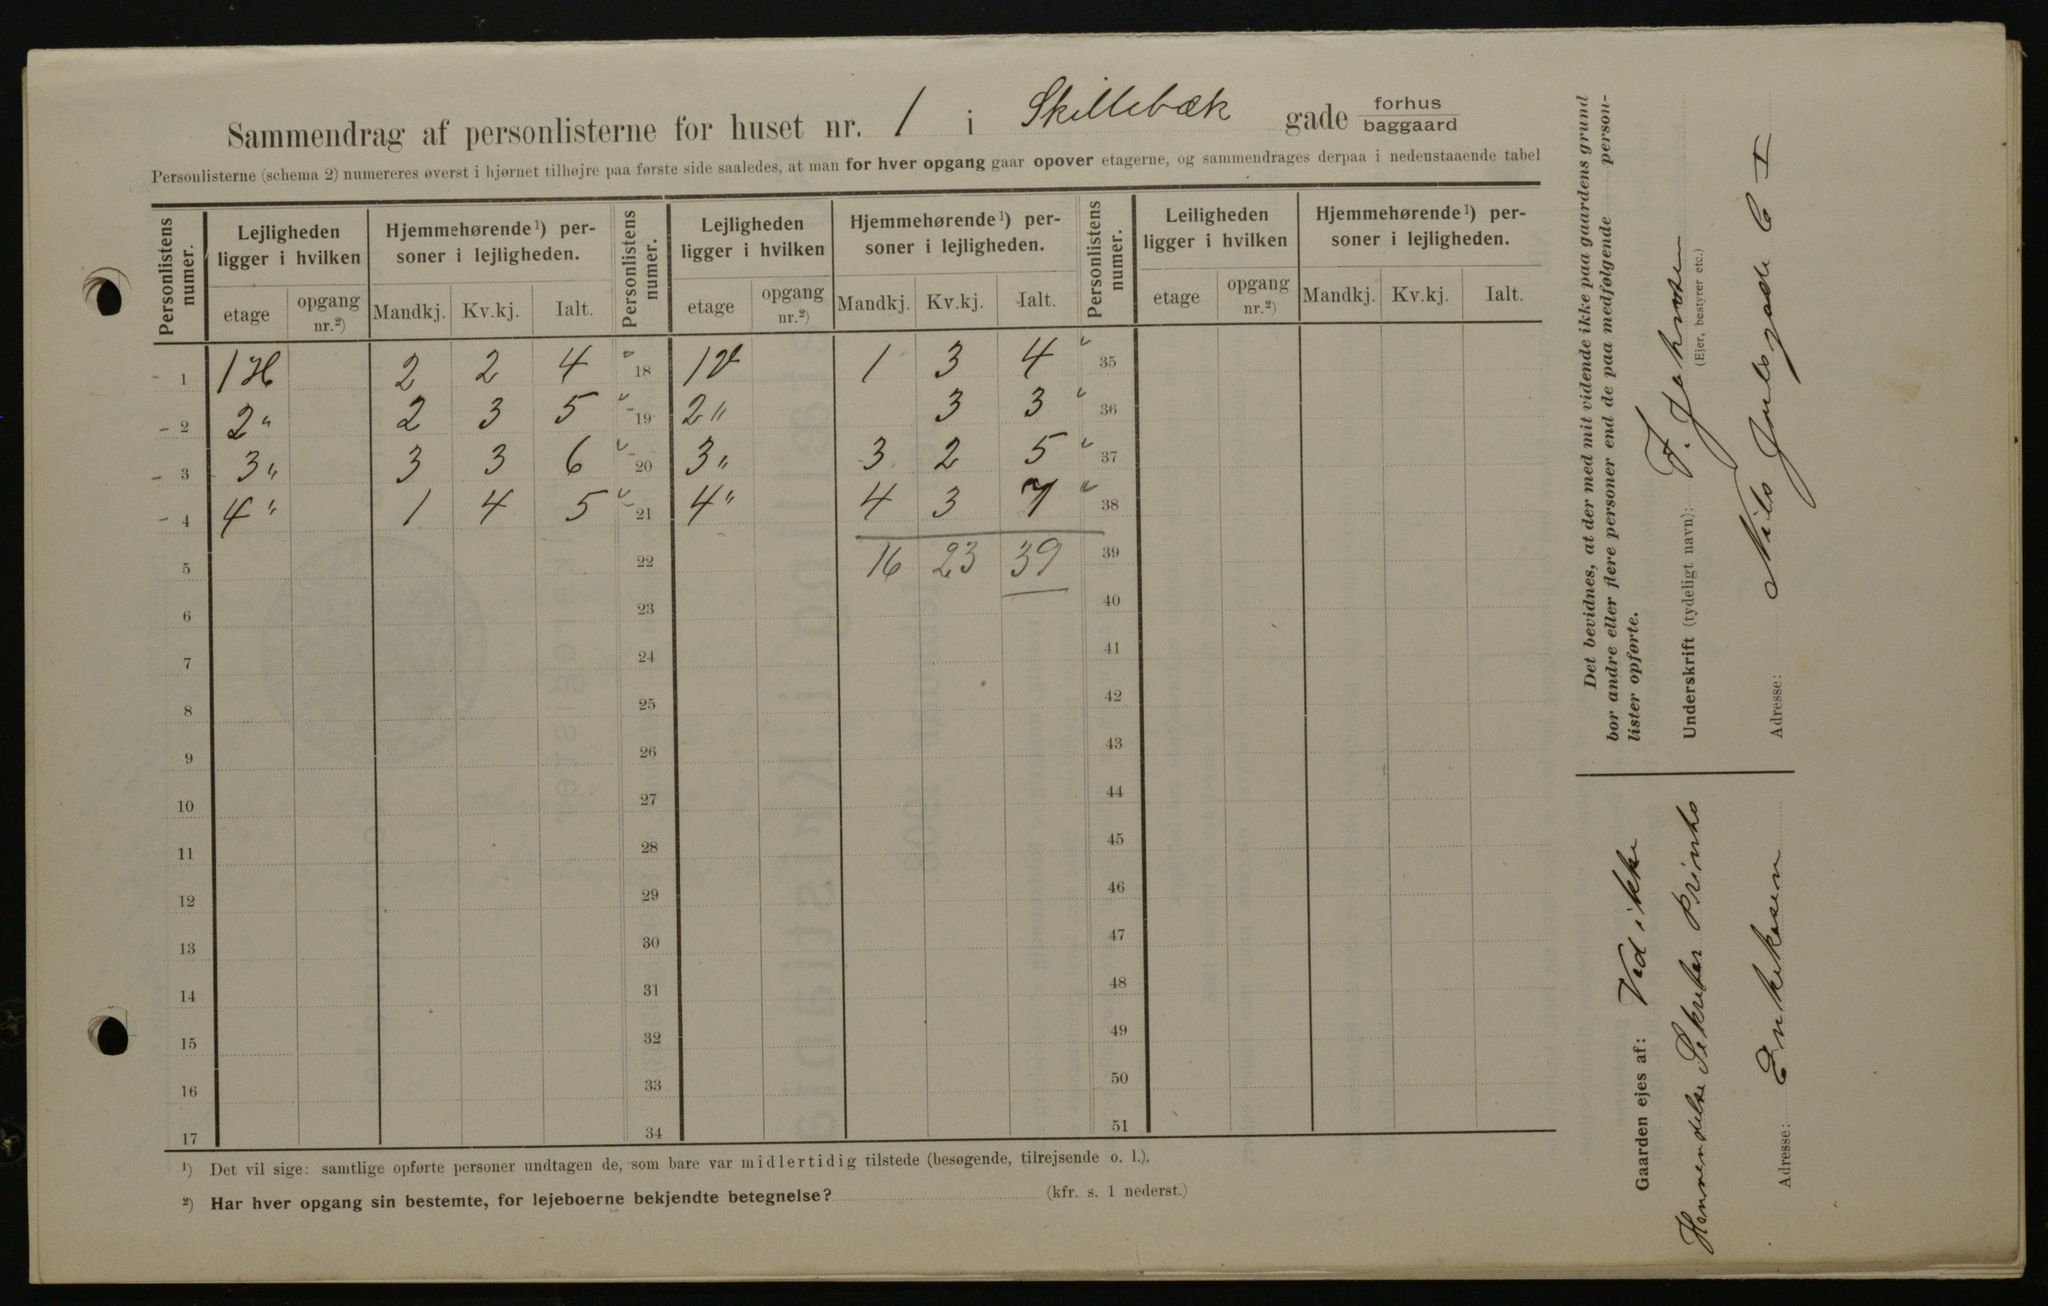 Sammendrag af personlisterne for huset nr. 1 i Skillebæk gade forhus
baggaard
Personlisterne (schema 2) numereres øverst i hjørnet tilhøjre paa første side saaledes, at man for hver opgang gaar opover etagerne, og sammendrages derpaa i nedenstaaende tabel
Personlistens numer. Lejligheden ligger i hvilken Hjemmehørende¹) personer i lejligheden. Personlistens numer. Lejligheden ligger i hvilken Hjemmehørende¹) personer i lejligheden. Personlistens numer. Leiligheden ligger i hvilken Hjemmehørende¹) personer i lejligheden.
etage opgang nr.²) Mandkj. Kv.kj. Ialt. etage opgang nr.²) Mandkj. Kv.kj. Ialt. etage opgang nr.²) Mandkj. Kv.kj. Ialt.
1 1 H 2 2 4 18 1 V 1 3 4 35
2 2 " 2 3 5 19 2 " 3 3 36
3 3 " 3 3 6 20 3 " 3 2 5 37
4 4 " 1 4 5 21 4 " 4 3 7 38
5 22 16 23 39 39
6 23 40
7 24 41
8 25 42
9 26 43
10 27 44
11 28 45
12 29 46
13 30 47
14 31 48
15 32 49
16 33 50
17 34 51
¹) Det vil sige: samtlige opførte personer undtagen de, som bare var midlertidig tilstede (besøgende, tilrejsende o. l.).
²) Har hver opgang sin bestemte, for lejeboerne bekjendte betegnelse? (kfr. s. 1 nederst.)
Det bevidnes, at der med mit vidende ikke paa gaardens grund
bor andre eller flere personer end de paa medfølgende person-
lister opførte.
Underskrift (tydeligt navn): F. Johnsen
(Ejer, bestyrer etc.)
Adresse: Nils Juelsgade 6 I
Gaarden ejes af: Ved ikke
Sekretær
Adresse: Enkekassen